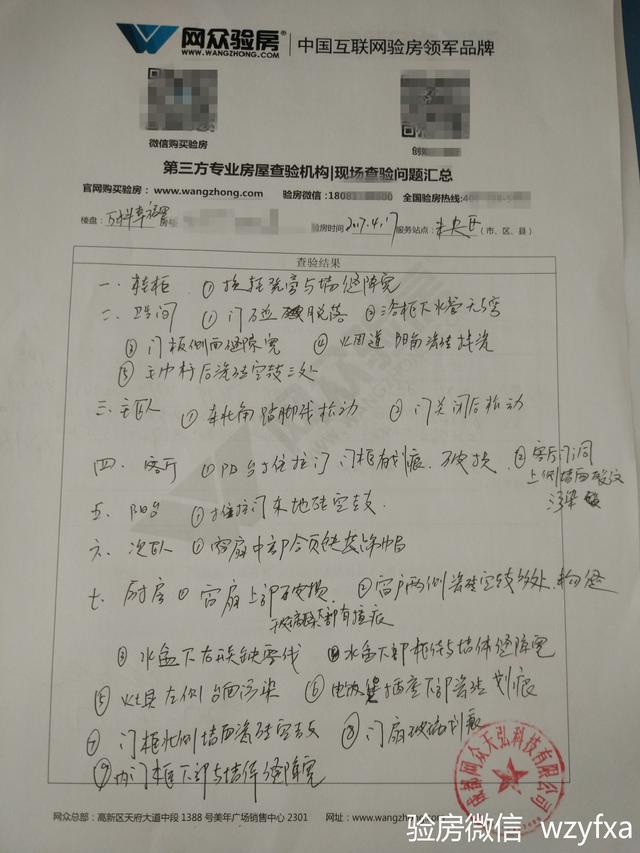 网众验房®
WWW.WANGZHONG.COM
中国互联网验房领军品牌
微信购买验房
第三方专业房屋查验机构|现场查验问题汇总
官网购买验房：www.wangzhong.com 验房微信：1808 全国验房热线:
楼盘: 万科 验房时间 2017.4.17 服务站点: 未央区 (市、区、县)
查验结果
一、鞋柜 ① 石膏与墙缝隙宽
二、卫生间 ① 门碰脱落 ② 浴柜下水管无S弯
③ 门板侧面缝隙宽 ④ 阳角瓷砖掉瓷
⑤ 后瓷砖空鼓三处
三、主卧 ① 东北角踢脚线松动 ② 门关闭后松动
四、客厅 ① 阳台推拉门门框有划痕、破损 ② 客厅门洞
上侧墙面裂纹
污染
五、阳台 ① 推拉门东地砖空鼓
六、次卧 ① 窗扇中部合页缺装饰帽
七、厨房 ① 窗扇上部破损 ② 窗户两侧瓷砖空鼓
下部有划痕
③ 水盆下右 ④ 水盆下部柜体与墙体缝隙宽
⑤ 灶具左侧台面污染 ⑥ 插座下部瓷砖划痕
⑦ 门框北侧墙面瓷砖空鼓 ⑧ 门扇破损划痕
⑨ 内门框下部与墙体缝隙宽
成都网众天弘科技有限公司
网众总部：高新区天府大道中段 1388 号美年广场销售中心 2301 网址：www.wangzhong.com
验房微信 wzyfxa